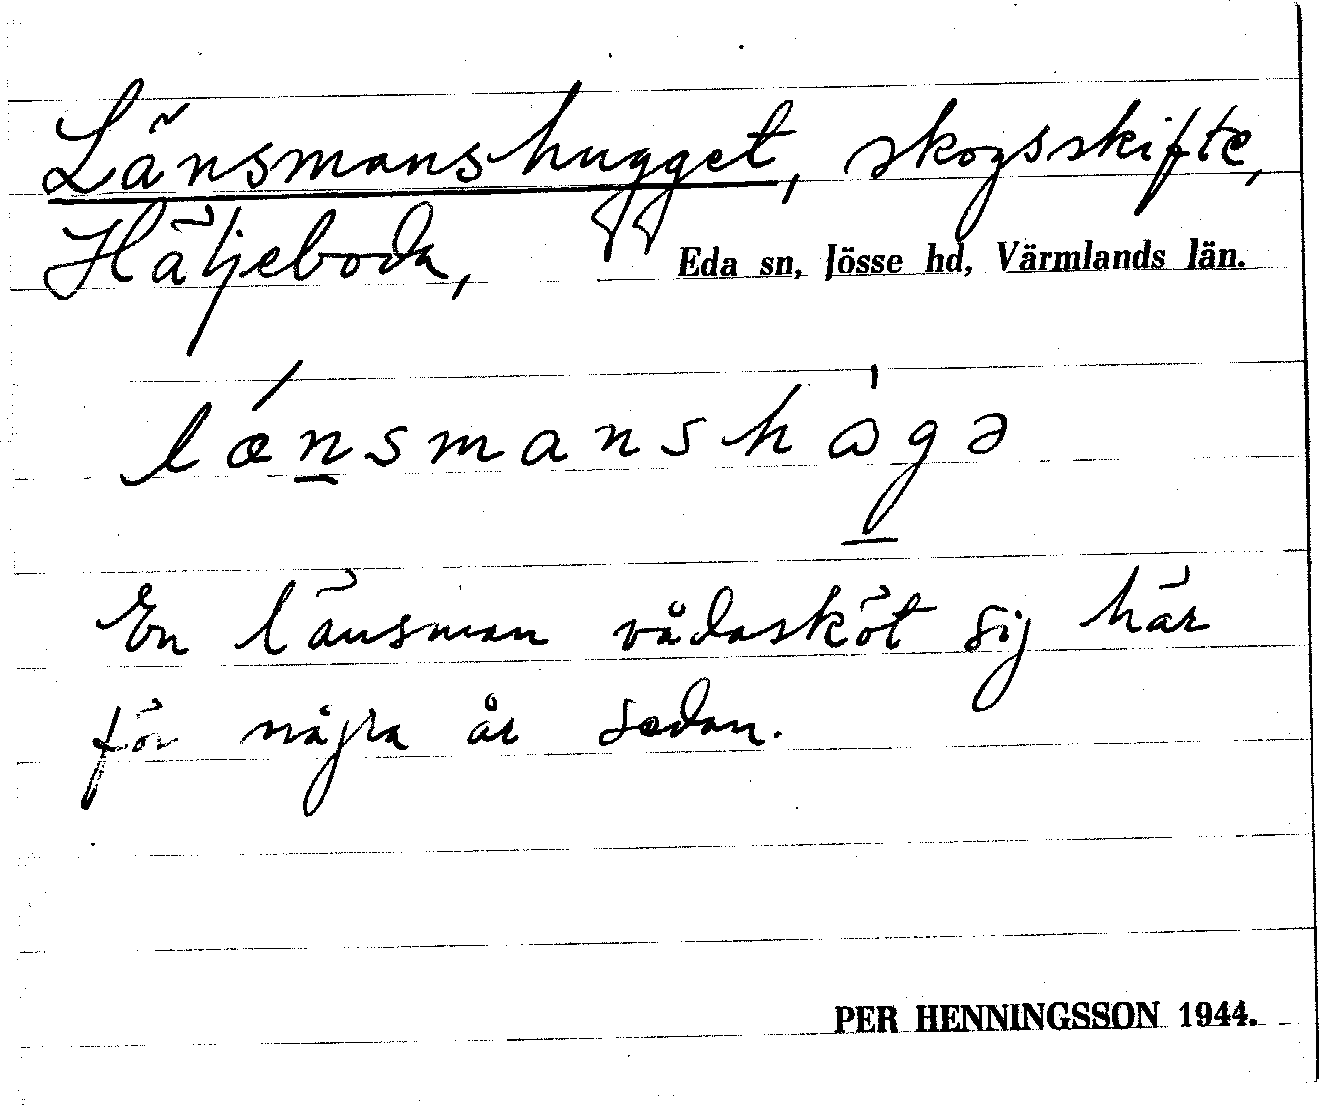 Länsmanshugget, skogsskifte,
Häljeboda, Eda sn, Jösse hd, Värmlands län.
lǽn̲smanshágə
En länsman vådasköt sig här
för några år sedan.
PER HENNINGSSON 1944.